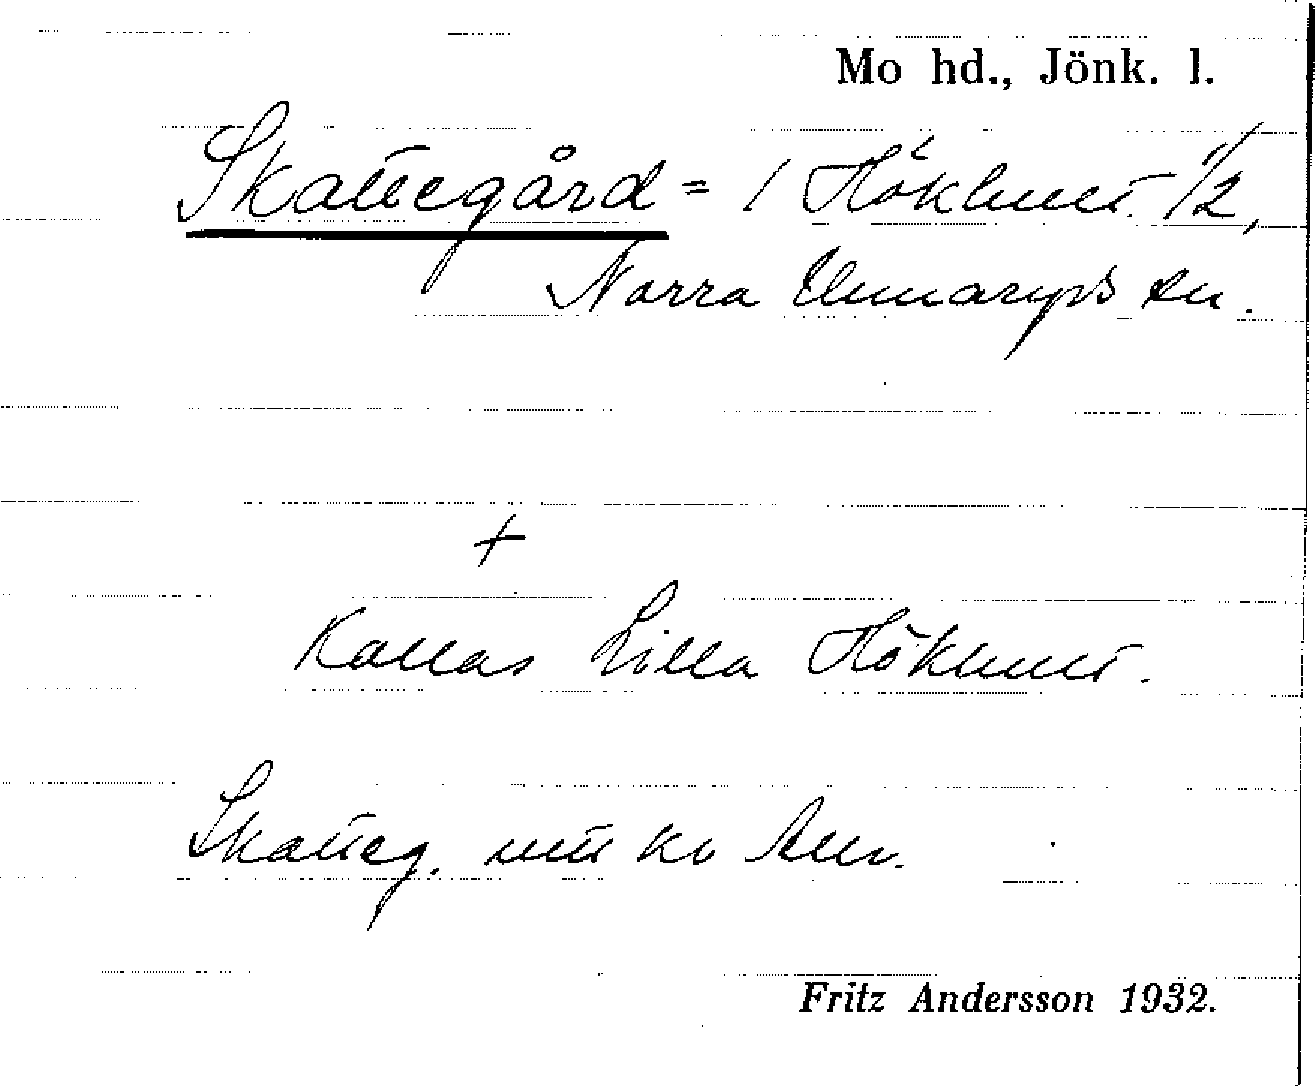 Mo hd., Jönk. l.
Skattegård = 1 Hökhult 1/2,
Norra Unnaryps sn.
+
Kallas Lilla Hökhult.
Skatteg.
Fritz Andersson 1932.